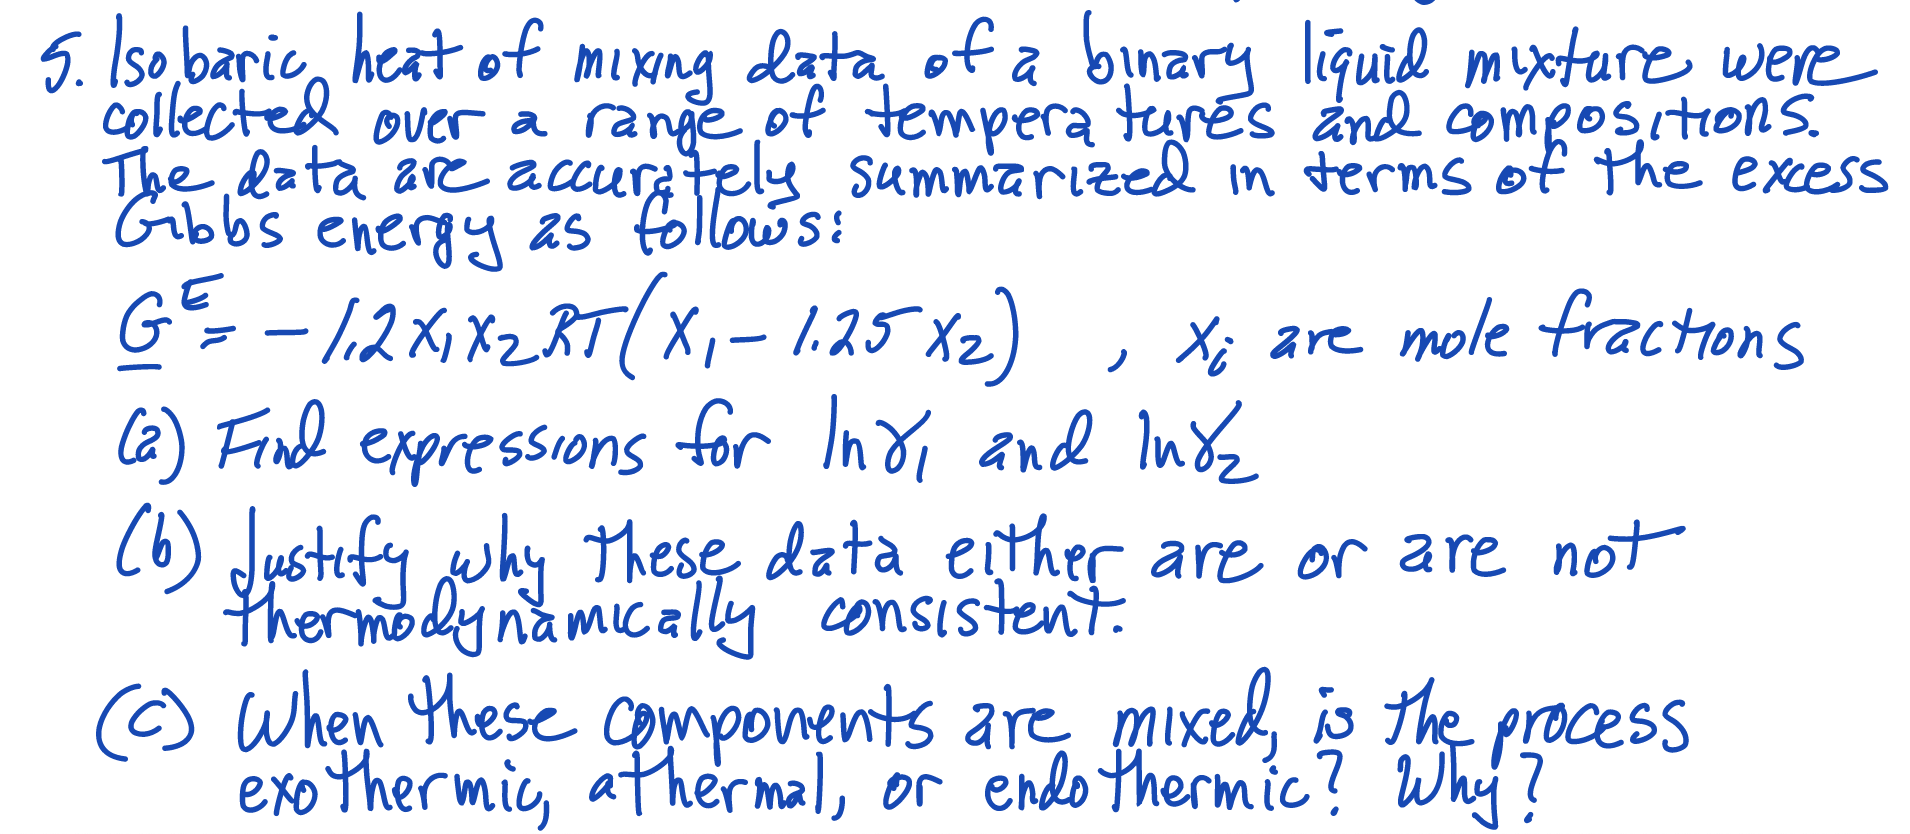 5. Isobaric heat of mixing data of a binary liquid mixture were
collected over a range of temperatures and compositions.
The data are accurately summarized in terms of the excess
Gibbs energy as follows:
G^E = -1.2 x₁x₂RT(x₁ - 1.25 x₂) , xᵢ are mole fractions
(a) Find expressions for ln γ₁ and ln γ₂
(b) Justify why these data either are or are not
thermodynamically consistent.
(c) When these components are mixed, is the process
exothermic, athermal, or endothermic? Why?